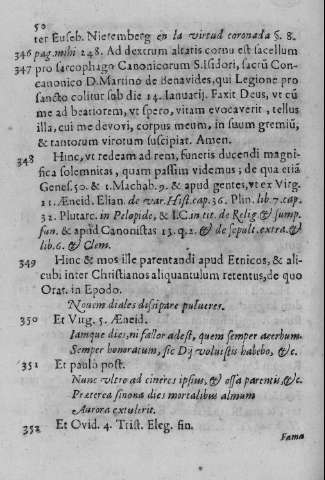 50
ter Euseb. Nieremberg en la virtud coronada §. 8.
346 pag. mihi 248. Ad dextrum altaris cornu est sacellum
347 pro sarcophago Canonicorum S. Isidori, sacrũ Con-
canonico D. Martino de Benavides, qui Legione pro
sancto colitur sub die 14. Ianuarij. Faxit Deus, vt cũ
me ad beatiorem, vt spero, vitam evocaverit, tellus
illa, cui me devovi, corpus meum, in suum gremiũ,
& tantorum virorum suscipiat. Amen.
348 Hinc, vt redeam ad rem, funeris ducendi magni-
fica solemnitas, quam passim videmus; de qua etiã
Genes. 50. & 1. Machab. 9. & apud gentes, vt ex Virg.
11. Æneid. Elian. de var. Hist. cap. 36. Plin. lib. 7. cap.
32. Plutarc. in Pelopide, & I. C. in tit. de Relig. & sump.
fun. & apud Canonistas 13. q. 2. & de sepult. extra. &
lib. 6. & Clem.
349 Hinc & mos ille parentandi apud Etnicos, & ali-
cubi inter Christianos aliquantulum retentus, de quo
Orat. in Epodo.
Novem diales dissipare pulueres.
350 Et Virg. 5. Æneid.
Iamque dies, ni fallor adest, quem semper acerbum.
Semper honoratum, sic Dij voluistis habebo, &c.
351 Et paulo post.
Nunc vltro ad cineres ipsius, & ossa parentis, &c.
Præterea si nona dies mortalibus almum
Aurora extulerit.
352 Et Ovid. 4. Trist. Eleg. fin.
Fama